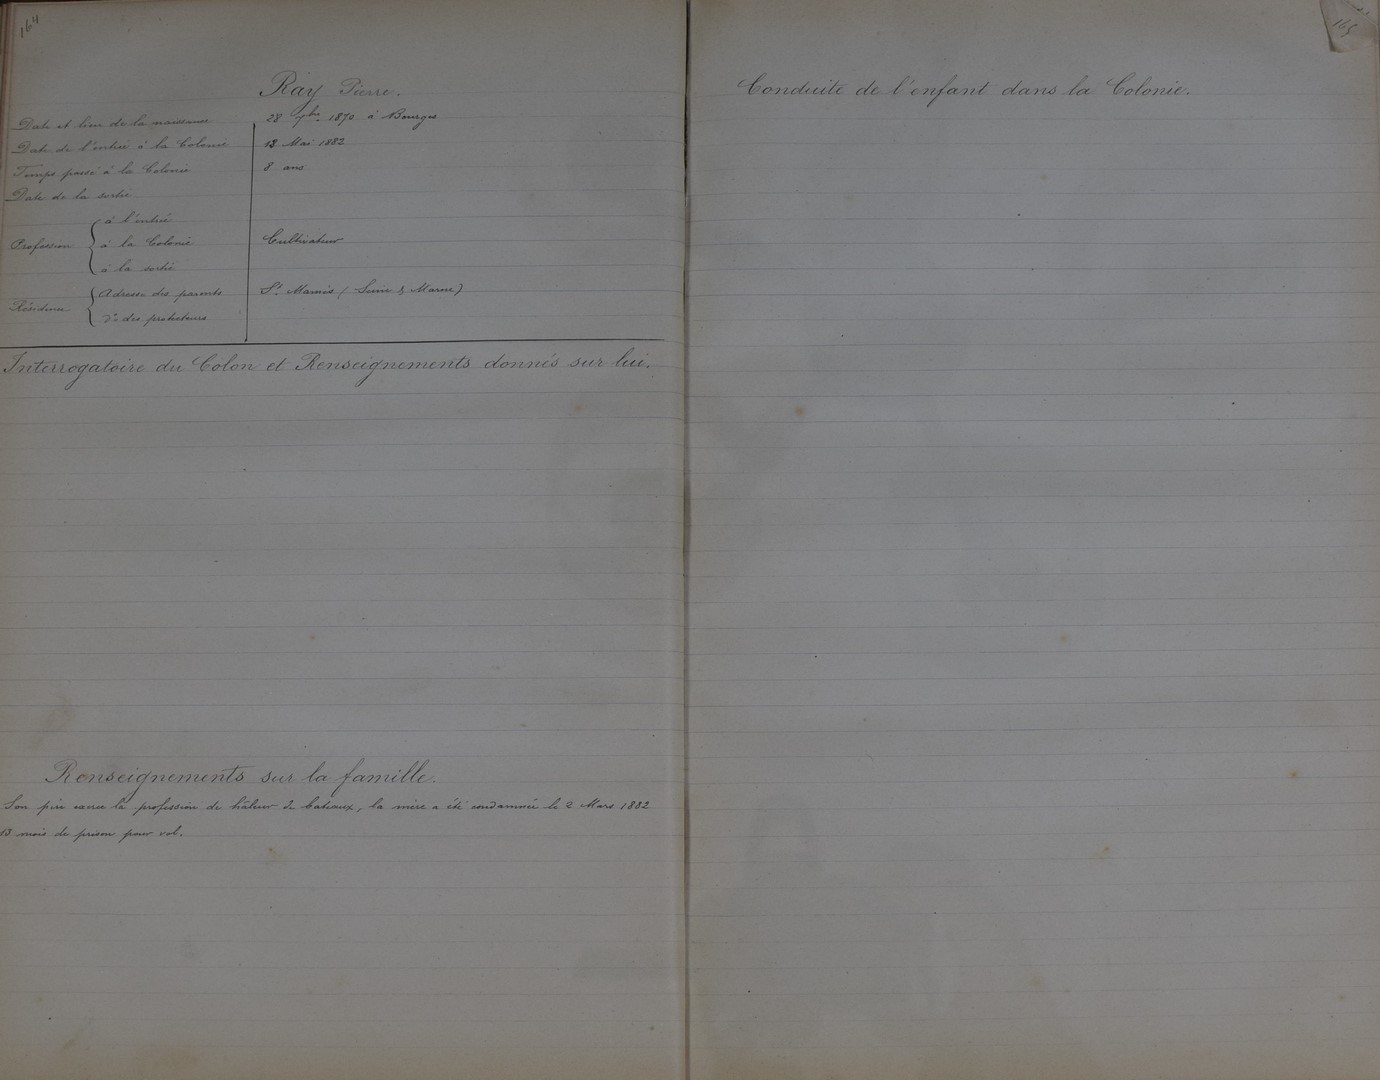 164
Ray Pierre.
Date et lieu de la naissance 28 7bre 1870 à Bourges
Date de l'entrée à la Colonie 13 Mai 1882
Temps passé à la Colonie 8 ans
Date de la sortie
Profession
à l'entrée
à la Colonie Cultivateur
à la sortie
Résidence
Adresse des parents St Mamès (Seine & Marne)
do des protecteurs
Interrogatoire du Colon et Renseignements donnés sur lui.
Renseignements sur la famille.
Son père exerce la profession de hâleur de bateaux, la mère a été condamnée le 2 Mars 1882
13 mois de prison pour vol.
165
Conduite de l'enfant dans la Colonie.